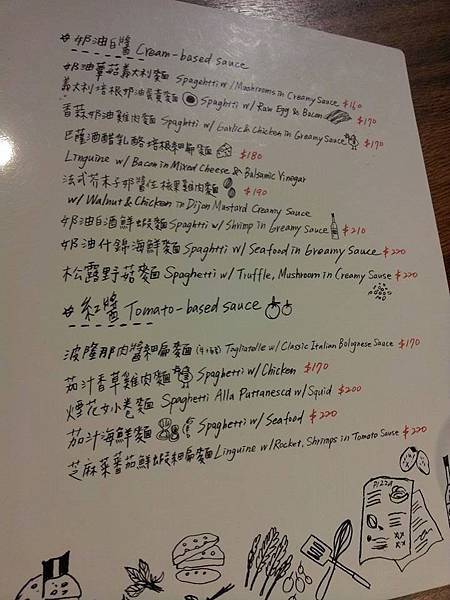 # 奶油白醬 Cream-based sauce
奶油蘑菇義大利麵 Spagehtti w/Mushrooms in Creamy Sauce $160
義大利培根奶油蛋黃麵 Spaghtti w/ Raw Egg & Bacon $170
香蒜奶油雞肉麵 Spaghtti w/ Garlic & Chicken in Greamy Sauce $170
巴薩米醋乳酪培根細扁麵 $180
Linguine w/ Bacon in Mixed Cheese & Balsamic Vinegar
法式芥末子奶醬佐核果雞肉麵 $190
w/ Walnut & Chicken in Dijon Mustard Creamy Sauce
奶油白酒鮮蝦麵 Spaghtti w/ Shrimp in Greamy Sauce $210
奶油什錦海鮮麵 Spaghtti w/ Seafood in Greamy Sauce $220
松露野菇麵 Spaghetti w/ Truffle, Mushroom in Creamy Sause $220
# 紅醬 Tomato-based sauce
波隆那肉醬細扁麵 Tagliatelle w/ Classic Italian Bolognese Sauce $170
茄汁香草雞肉麵 Spaghetti w/ Chicken $170
煙花女小卷麵 Spaghetti Alla Puttanescd w/ Squid $200
茄汁海鮮麵 Spaghetti w/ Seafood $220
芝麻菜蕃茄鮮蝦細扁麵 Linguine w/ Rocket, Shrimps in Tomato Sause $220
PIZZA